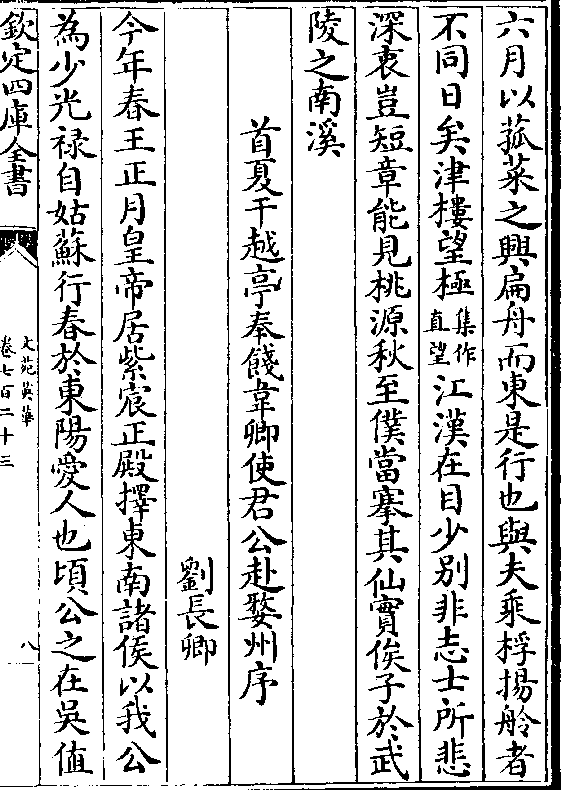 六月以菰菜之興扁舟而東是行也與夫乘桴揚舲者
不同日矣津樓望極集作直望江漢在目少別非志士所悲
深衷豈短章能見桃源秋至僕當搴其仙實俟子於武
陵之南溪
首夏干越亭奉餞韋卿使君公赴婺州序
劉長卿
今年春王正月皇帝居紫宸正殿擇東南諸侯以我公
為少光祿自姑蘇行春於東陽愛人也頃公之在吳值
欽定四庫全書
文苑英華
卷七百二十三
八